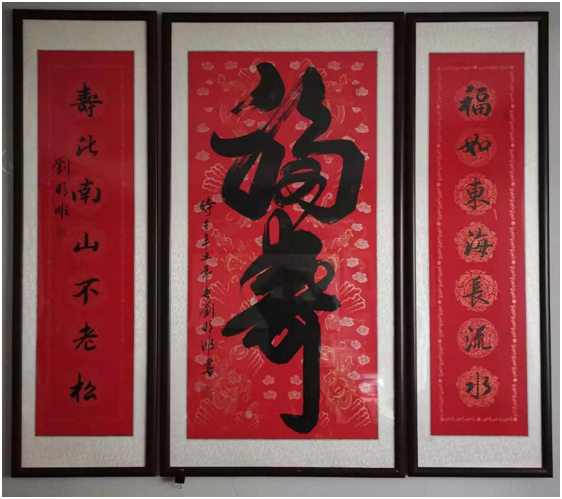 福如東海長流水
福壽
壽比南山不老松
劉明